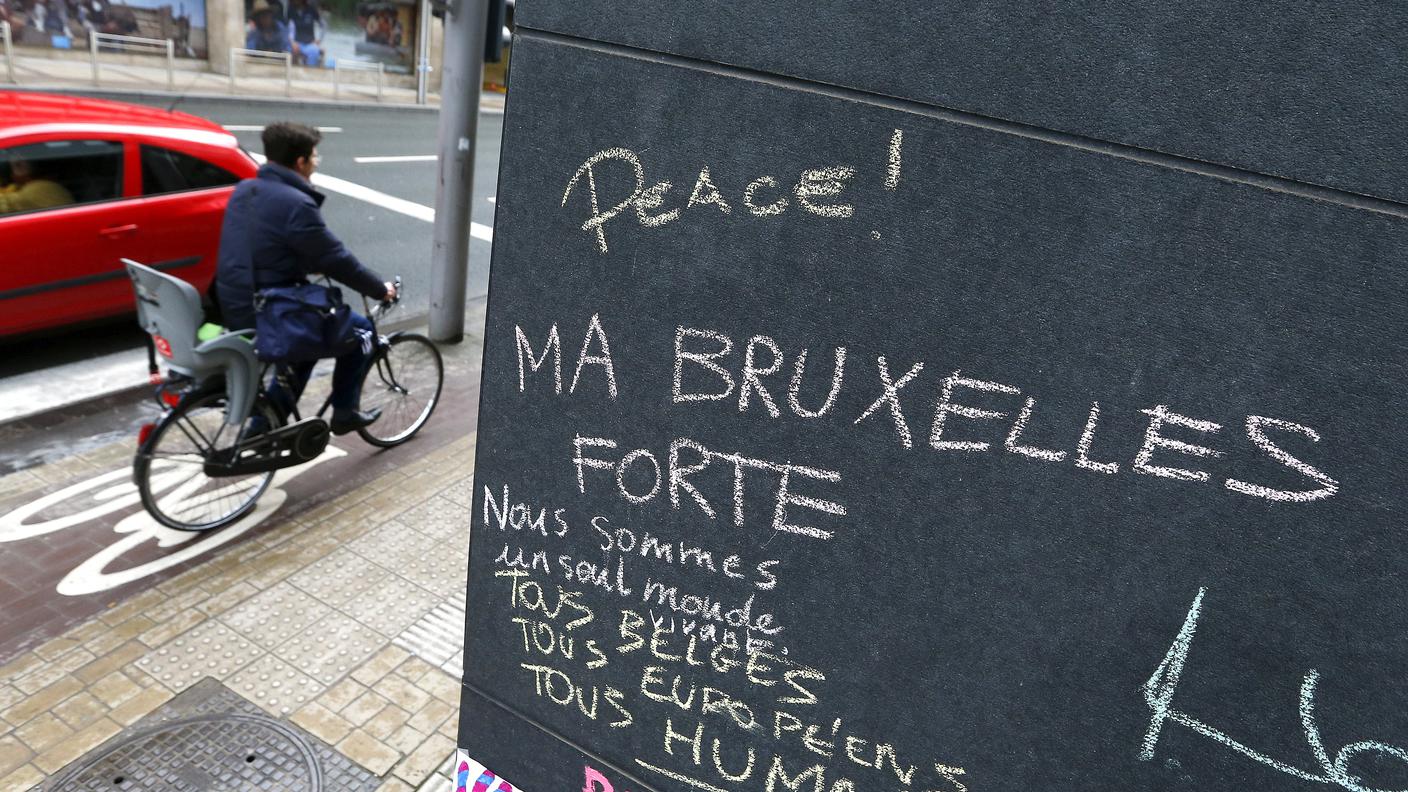 PEACE!
MA BRUXELLES
FORTE
Nous sommes
un seul monde
vivant.
TOUS BELGES
TOUS EUROPÉENS
TOUS